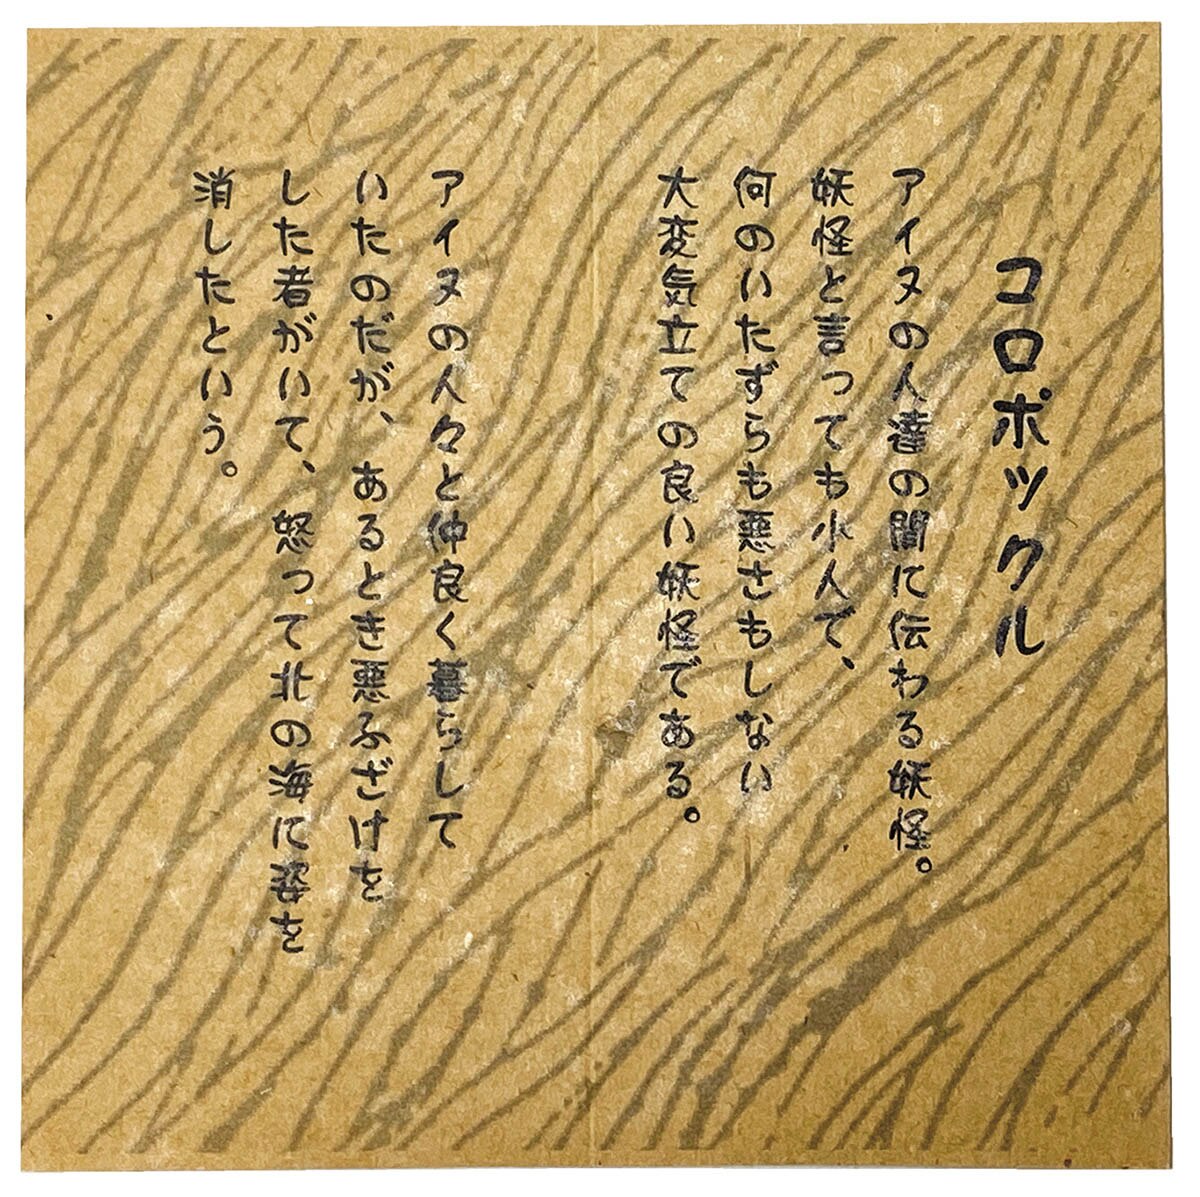 コロポックル
アイヌの人達の間に伝わる妖怪。
妖怪と言っても小人で、
何のいたずらも悪さもしない
大変気立ての良い妖怪である。
アイヌの人々と仲良く暮らして
いたのだが、あるとき悪ふざけを
した者がいて、怒って北の海に姿を
消したという。